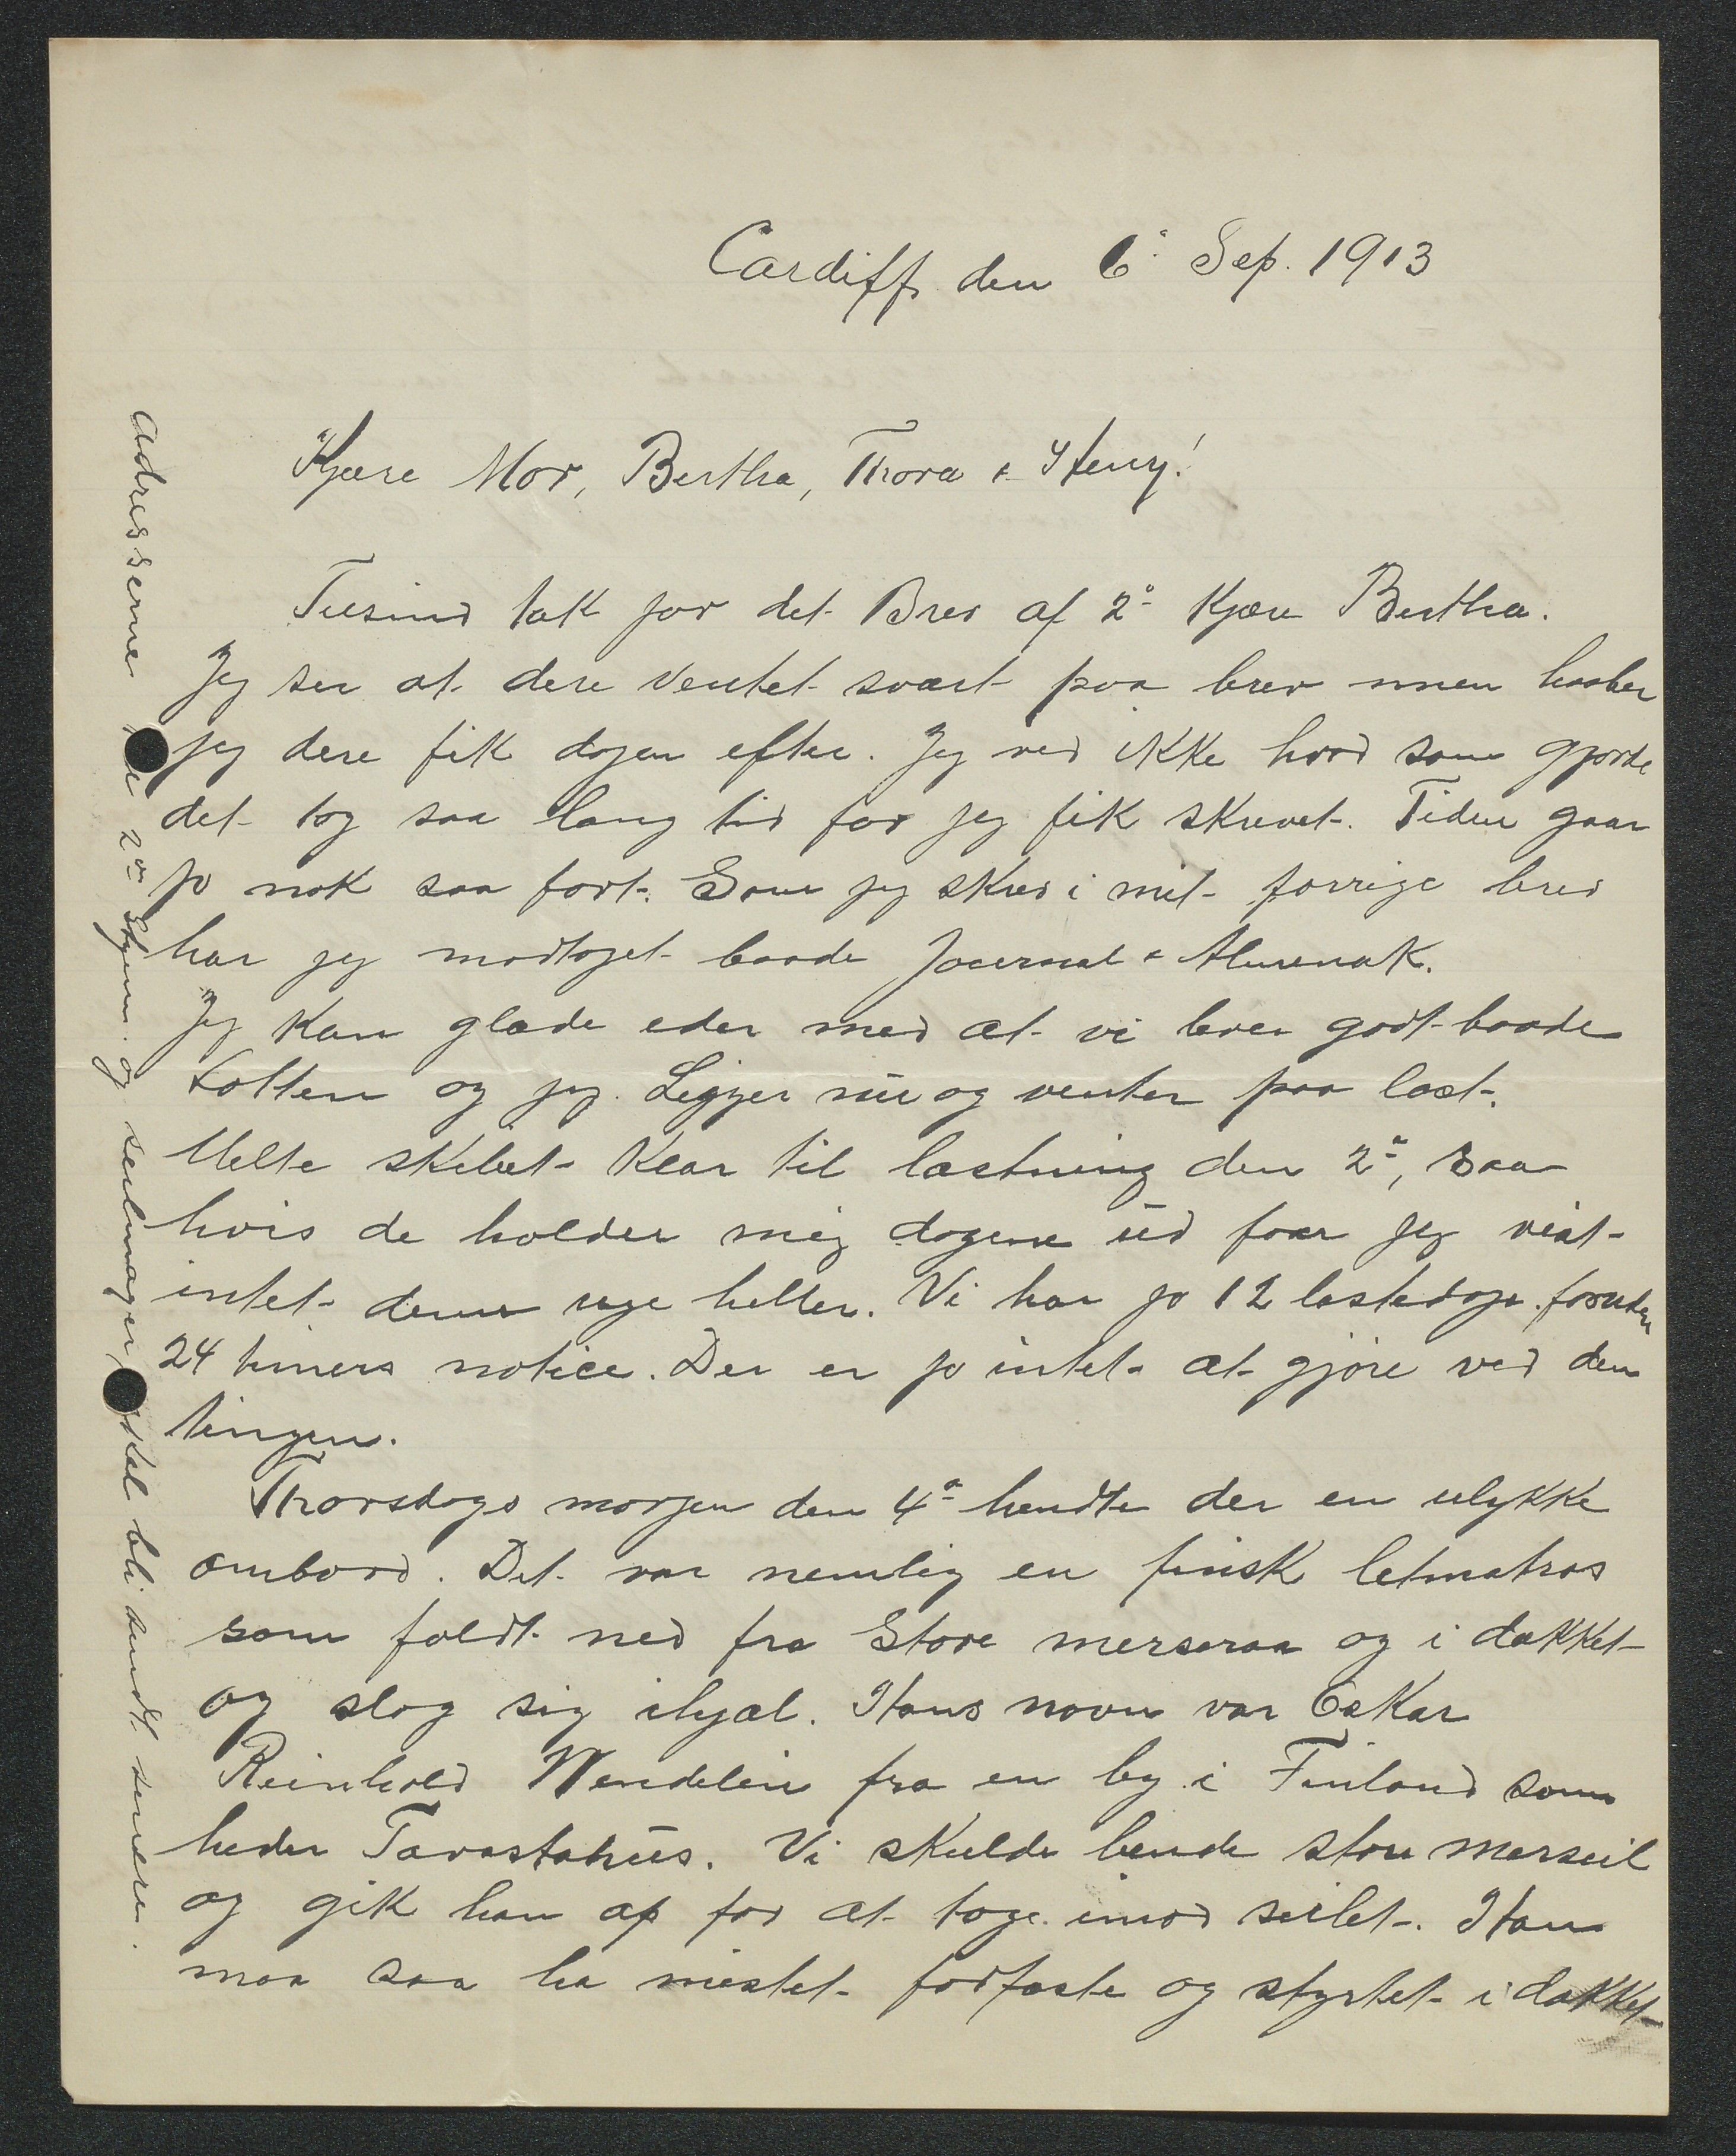 Cardiff den 6' Sep. 1913
Kjære Mor, Bertha, Thora & Henry!
Tusind tak for det Brev af 2º Kjære Bertha.
Jeg ser at dere ventet svært paa brev men haaber
jeg dere fik dagen efter. Jeg ved ikke hvad som gjorde
det tog saa lang tid før jeg fik skrevet. Tiden gaar
jo nok saa fort. Som jeg skrev i mit forrige brev
har jeg modtaget baade Journal & Almenak.
Jeg kan glæde eder med at vi lever godt baade
Lotten og jeg. Ligger nu og venter paa last.
Melte skibet klar til lastning den 2º, saa
hvis de holder mig dagene ud faar jeg vist
intet denne uge heller. Vi har jo 12 lastedage foruten
24 timers notice. Der er jo intet at gjøre ved den
tingen.
Thorsdags morgen den 4º hendte der en ulykke
ombord. Det var nemlig en finsk letmatros
som faldt ned fra Store merseraa og i dækket
og slog sig ihjæl. Hans navn var Oskar
Reinhold Wendelin fra en by i Finland som
heder Tavastahus. Vi skulde bende store merseil
og gik han op for at tage imod seilet. Han
maa saa ha mistet fodfæste og styrtet i dækket
Adresserne 2den Styrm. og seilmager skal bli sendt senere.